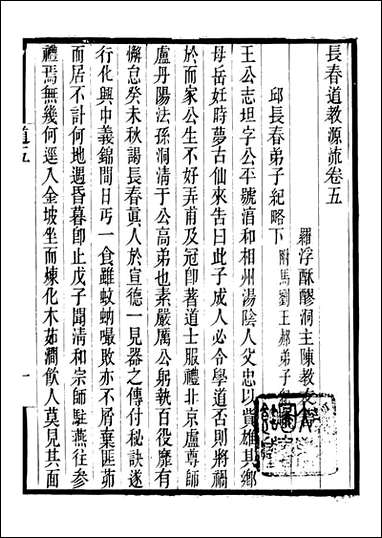 長春道教源流卷五
羅浮酥醪洞主陳教友
邱長春弟子紀略下附馬劉王郝弟子紀
王公志坦字公平號淯和相州湯陰人父忠以貲雄其鄉
母岳妊時夢古仙來告曰此子成人必令學道否則將禍
於而家公生不好弄甫及冠卽著道士服禮北京盧尊師
盧丹陽法孫洞清于公高弟也素嚴厲公躬執百役靡有
懈怠癸未秋謁長春眞人於宣德一見器之傳付秘訣遂
行化興中義錦閒日丐一食雖蚊蚋嘬敗亦不屑棄匪茹
而居不計何地遇昏暮卽止戊子聞清和宗師駐燕往參
禮焉無幾何逕入金坡坐而煉化木茹澗飮人莫見其面
道五
一